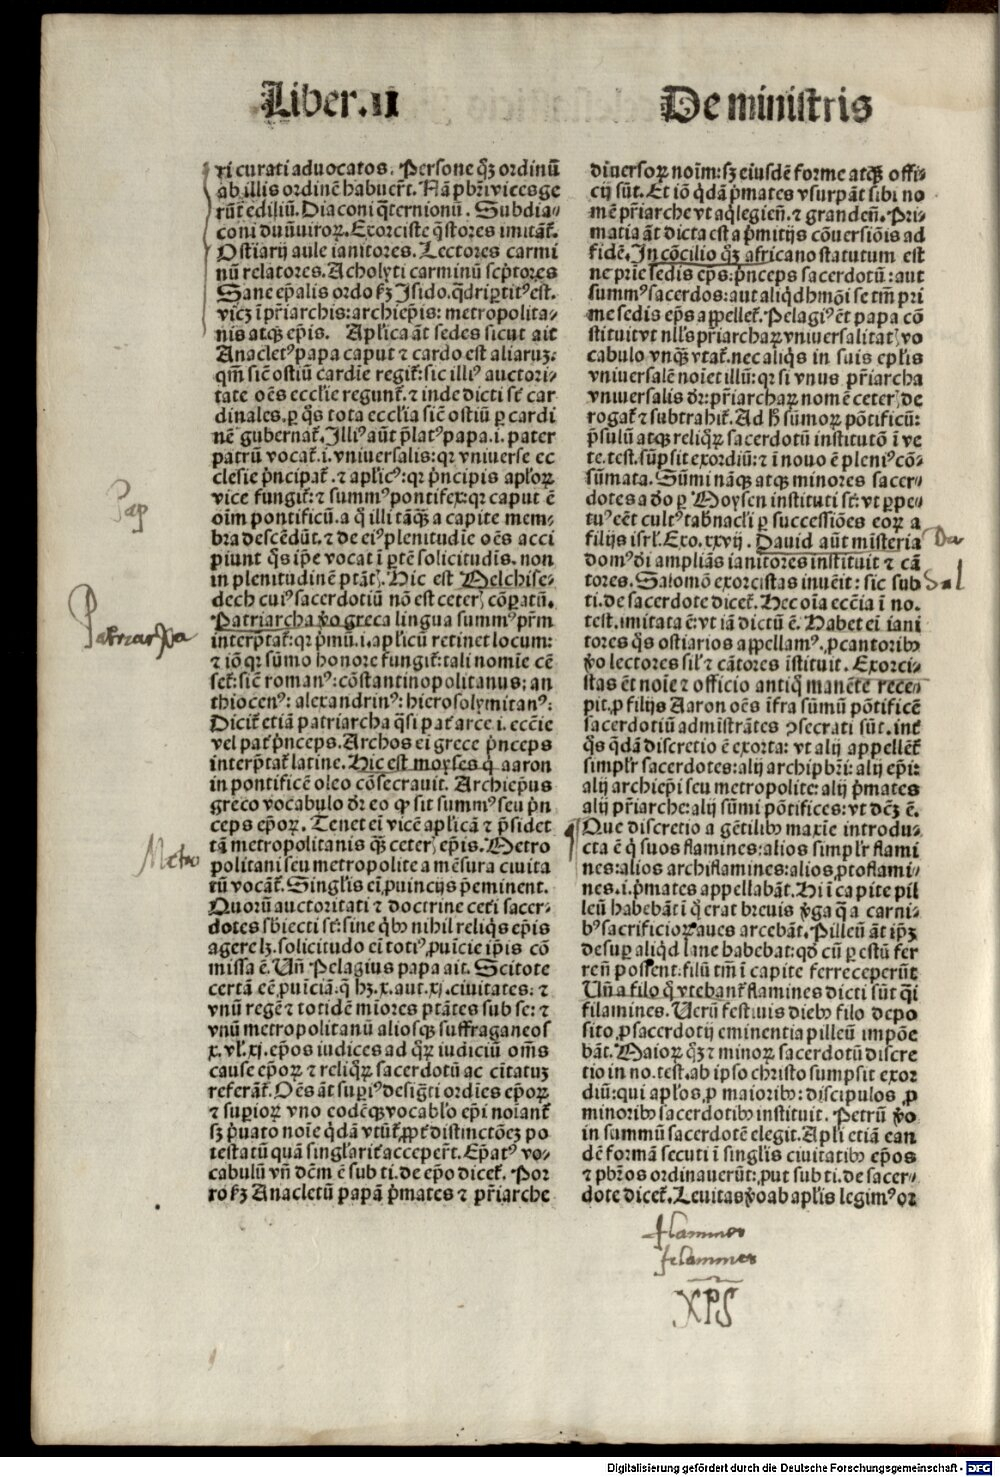 Liber.II
De ministris
xi curati aduocatos. Persone qꝫ ordinū
ab illis ordinē habuer̄t. Nā pbr̄i vices ge
rūt ediliū. Diaconi q̄ternionū. Subdia⸗
coni duūuiroꝝ. Exorciste q̄stores imitāt̄.
Ostiarij aule ianitores. Lectores carmi
nū relatores. Acholyti carminū scp̄tores
Sane ep̄alis ordo ẜꝫ Isido. q̄dripertitꝰ est.
vicꝫ ī pr̄iarchis: archiep̄is: metropolita⸗
nis atqꝫ ep̄is. Aplica āt sedes sicut ait
Anacletꝰ papa caput ⁊ cardo est aliaruꝫ:
qm̄ sic̄ ostiū cardīe regit̄: sic illiꝰ auctori⸗
tate oēs ecclīe regunt̄. ⁊ inde dicti sūt car
dinales. ꝑ q̄s tota ecclīa sic̄ ostiū ꝑ cardi
nē gubernat̄. Illiꝰ aūt p̄latꝰ papa .i. pater
patrū vocat̄ .i. vniuersalis: qr vniuerse ec
clesie p̄ncipat̄. ⁊ aplicꝰ: qr p̄ncipis apl̄oꝝ
vice fungit̄: ⁊ summꝰ pontifex: qr caput ē
oīm pontificū. a q̄ illi tāqꝫ a capite mem⸗
bra descēdūt. ⁊ de eiꝰ plenitudīe oēs acci
piunt q̄s ip̄e vocat ī ptē solicitudīs. non
in plenitudinē ptāt̄. Hic est Melchise⸗
dech cuiꝰ sacerdotiū nō est ceteꝝ cōꝑatū.
Patriarcha ꝟo greca lingua summꝰ pr̄m
interp̄tat̄: qr p̄mū .i. aplicū retinet locum:
⁊ iō qr sūmo honore fungit̄: tali nomīe cē
set̄: sic̄ romanꝰ: cōstantinopolitanus: an
thiocenꝰ: alexandrinꝰ: hierosolymitanꝰ:
Dicit̄ etiā patriarcha q̄si pat̄ arce .i. ecc̄ie
vel pat̄ p̄nceps. Archos ei grece p̄nceps
interp̄tat̄ latine. Hic est moyses q̄ aaron
in pontificē oleo cōsecrauit. Archiep̄us
greco vocabulo dr̄ eo ꝙ sit summꝰ seu p̄n
ceps ep̄oꝝ. Tenet ei vicē aplicā ⁊ p̄sidet
tā metropolitanis qꝫ ceteꝝ ep̄is. Metro
politani seu metropolite a mēsura ciuita
tū vocāt̄. Singlīs ei ꝓuincijs p̄eminent.
Quorū auctoritati ⁊ doctrine cet̄i sacer⸗
dotes sb̄iecti sūt: sine q̄bꝰ nihil reliq̄s ep̄is
agere lꝫ. solicitudo ei totiꝰ ꝓuīcie ip̄is cō
missa ē. Vn̄ Pelagius papa ait. Scitote
certā eē ꝓuīciā: q̄ hꝫ .x. aut .xj. ciuitates: ⁊
vnū regē ⁊ totidē miōres ptātes sub se: ⁊
vnū metropolitanū aliosqꝫ suffraganeos
x. vl̄ .xj. ep̄os iudices ad q̄ꝝ iudiciū oīms
cause ep̄oꝝ ⁊ reliq̄ꝝ sacerdotū ac citatuꝫ
referāt̄. Oēs āt supiꝰ desiḡti ordīes ep̄oꝝ
⁊ superioꝝ vno eodēqꝫ vocabl̄o ep̄i noīant̄
sꝫ p̄uato noīe q̄dā vtūt̄ ꝓpt̄ distinctōeꝫ po
testatū quā singlarit̄ acceper̄t. Ep̄atꝰ vo⸗
cabulū vn̄ dēm ē sub ti. de ep̄o dicet̄. Por
ro ẜꝫ Anacletū papā p̄mates ⁊ pr̄iarche
diuersoꝝ noīm: sꝫ eiusdē forme atqꝫ offi⸗
cij sūt. Et iō q̄dā p̄mates vsurpāt sibi no
mē pr̄iarche vt aq̄legien̄. ⁊ granden̄. Pri⸗
matia āt dicta est a p̄mitijs cōuersiōis ad
fidē. In cōcilio qꝫ africano statutum est
ne prīe sedis ep̄s: p̄nceps sacerdotū: aut
summꝰ sacerdos: aut aliqd hmōi se tm̄ pri
me sedis ep̄s appellet̄. Pelagiꝰ ēt papa cō
stituit vt nll̄s pr̄iarchaꝝ vniuersalitatꝭ vo
cabulo vnqꝫ vtat̄. nec aliq̄s in suis epl̄is
vniuersalē noīet illū: qr si vnus pr̄iarcha
vniuersalis dr̄: pr̄iarchaꝝ nomē ceteꝝ de
rogat̄ ⁊ subtrahit̄. Ad h̄ sūmoꝝ pōtificū:
p̄sulū atqꝫ reliq̄ꝝ sacerdotū institutō ī ve
te. test. sūpsit exordiū: ⁊ ī nouo ē pleniꝰ cō⸗
sūmata. Sūmi nāqꝫ atqꝫ minores sacer⸗
dotes a dō ꝑ Moysen instituti sūt: vt ꝑpe⸗
tuꝰ eēt cultꝰ tabnacl̄i ꝑ successiōes eoꝝ a
filijs isrl̄. Exo. xxvij. Dauid aūt misteria
domꝰ dī ampliās ianitores instituit ⁊ cā
tores. Salomō exorcistas inuēit: sic sub
ti. de sacerdote dicet̄. Hec oīa ecc̄ia ī no.
test. imitata ē: vt iā dictū ē. Habet ei iani
tores q̄s ostiarios appellamꝰ. ꝓ cantoribꝰ
ꝟo lectores sil̄r ⁊ cātores īstituit. Exorci⸗
stas ēt noīe ⁊ officio antiq̄ manēte rece⸗
pit. ꝓ filijs Aaron oēs īfra sūmū pōtificē
sacerdotiū admīstrātes ꝯsecrati sūt. int̄
q̄s q̄dā discretio ē exorta: vt alij appellēt̄
simpl̄r sacerdotes: alij archipbr̄i: alij ep̄i:
alij archiep̄i seu metropolite: alij p̄mates
alij pr̄iarche: alij sūmi pōtifices: vt dēꝫ ē.
Que discretio a gētilibꝰ maxīe introdu⸗
cta ē q̄ suos flamines: alios simpl̄r flami
nes: alios archiflamines: alios ꝓtoflami⸗
nes .i. p̄mates appellabāt. Hi ī capite pil
leū habebāt ī q̄ erat breuis ꝟga q̄ a carni⸗
bꝰ sacrificioꝝ aues arcebāt. Pilleū āt ip̄ꝫ
desuꝑ aliqd lane habebat: qd cū ꝑ estū fer
ren̄ possent: filū tm̄ ī capite ferre ceperūt
Vn̄ a filo q̄ vtebant̄ flamines dicti sūt q̄i
filamines. Verū festiuis diebꝰ filo depo
sito ꝓ sacerdotij eminentia pilleū impōe
bāt. Maioꝝ qꝫ ⁊ minoꝝ sacerdotū discre
tio in no. test. ab ipso christo sumpsit exor
diū: qui apl̄os ꝓ maioribꝰ: discipulos ꝓ
minoribꝰ sacerdotibꝰ instituit. Petrū ꝟo
in summū sacerdotē elegit. Apl̄i etiā ean
dē formā secuti ī singlīs ciuitatibꝰ ep̄os
⁊ pbr̄os ordinauerūt: ꝓut sub ti. de sacer⸗
dote dicet̄. Leuitas ꝟo ab apl̄is legimꝰ or
Pap
Patriarcha
Metro
Da
Sal
flammes
filammes
XPS
Digitalisierung gefördert durch die Deutsche Forschungsgemeinschaft - DFG